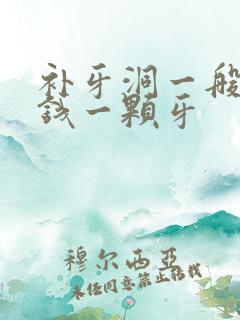 补牙洞一般
钱一颗牙
穆尔西亚
未经同意禁止转载